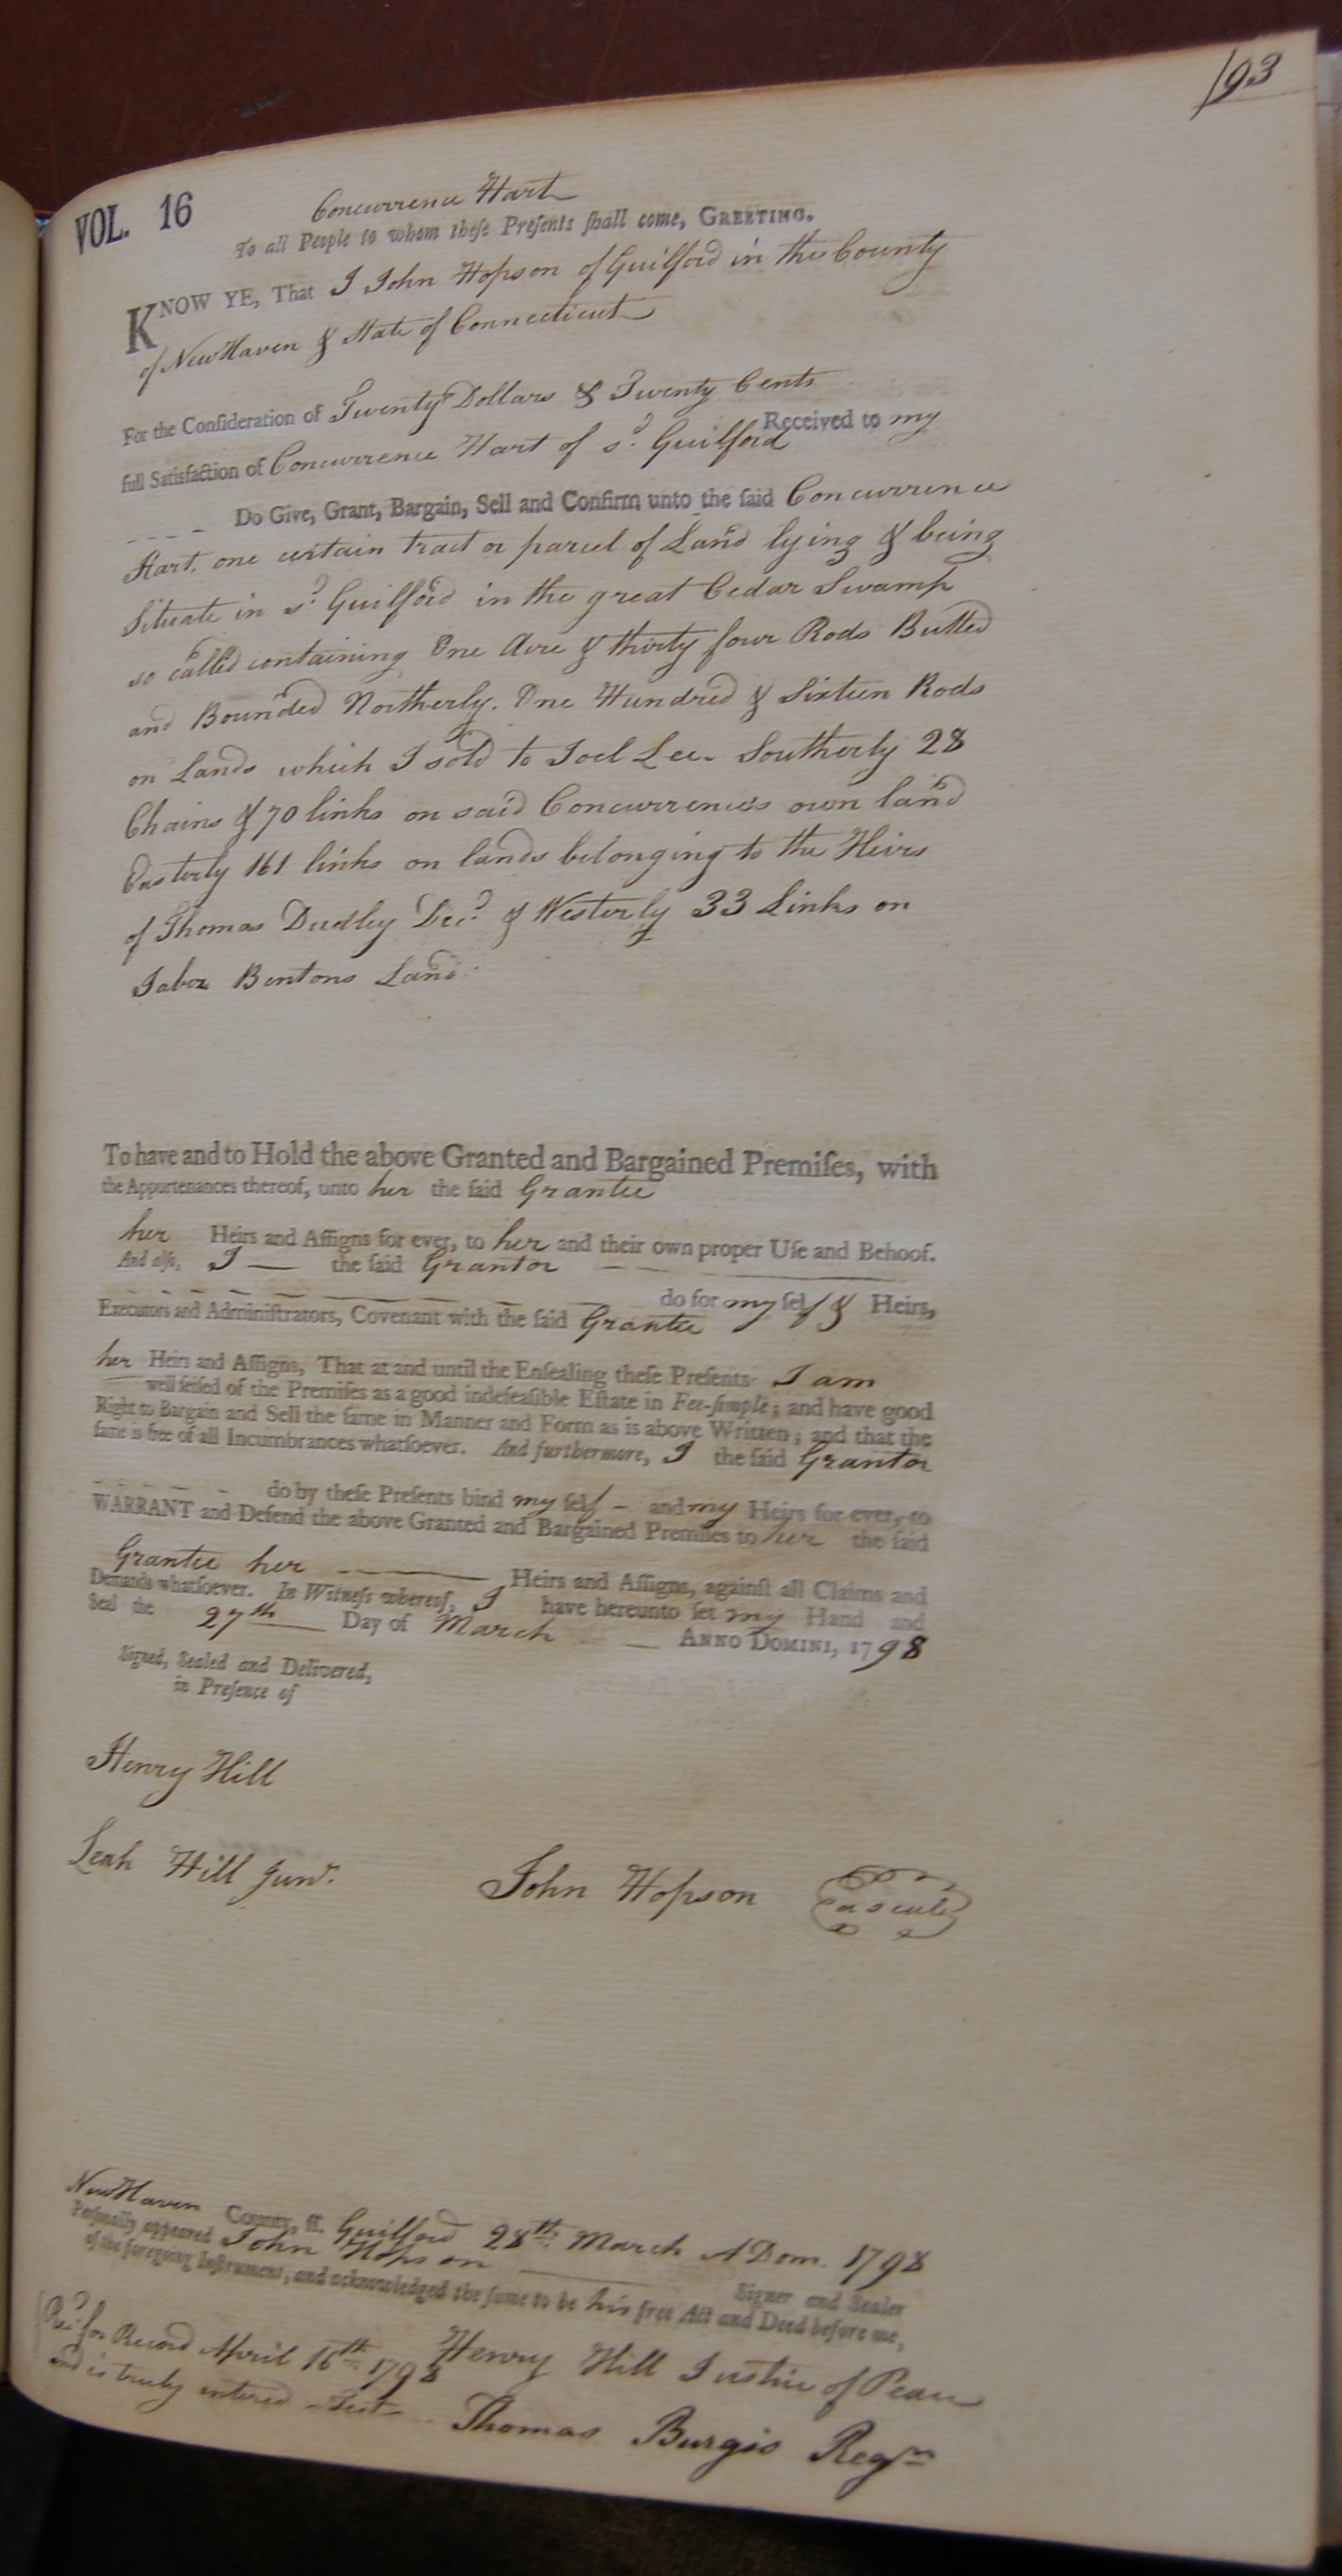 193
VOL. 16
Concurrence Hart
To all People to whom theſe Preſents ſhall come, GREETING.
KNOW YE, That I John Hopson of Guilford in the County
of New Haven & State of Connecticut
For the Conſideration of Twenty Dollars & Twenty Cents
Received to my
full Satisfaction of Concurrence Hart of sd. Guilford
Do Give, Grant, Bargain, Sell and Confirm unto the ſaid Concurrence
Hart, one certain tract or parcel of Land lying & being
Situate in sd. Guilford in the great Cedar Swamp
so called containing One Acre & thirty four Rods Butted
and Bounded Northerly. One Hundred & Sixteen Rods
on Lands which I sold to Joel Lee. Southerly 28
Chains & 70 links on said Concurrence's own land
Easterly 161 links on lands belonging to the Heirs
of Thomas Dudley Decd. & Westerly 33 Links on
Jabez Bentons Land
To have and to Hold the above Granted and Bargained Premiſes, with
the Appurtenances thereof, unto her the ſaid Grantee
her Heirs and Aſſigns for ever, to her and their own proper Uſe and Behoof.
And alſo, I the ſaid Grantor
do for my ſelf & Heirs,
Executors and Adminiſtrators, Covenant with the ſaid Grantee
her Heirs and Aſſigns, That at and until the Enſealing theſe Preſents I am
well ſeiſed of the Premiſes as a good indefeaſible Eſtate in Fee-ſimple; and have good
Right to Bargain and Sell the ſame in Manner and Form as is above Written; and that the
ſame is free of all Incumbrances whatſoever. And furthermore, I the ſaid Grantor
do by theſe Preſents bind my ſelf - and my Heirs for ever, to
WARRANT and Defend the above Granted and Bargained Premiſes to her the ſaid
Grantee her Heirs and Aſſigns, againſt all Claims and
Demands whatſoever. In Witneſs whereof, I have hereunto ſet my Hand and
Seal the 27th Day of March ANNO DOMINI, 1798
Signed, Sealed and Delivered,
in Preſence of
Henry Hill
Leah Hill Junr.
John Hopson a seal
New Haven County, ſſ. Guilford 28th March A Dom. 1798
Perſonally appeared John Hopson
Signer and Sealer
of the foregoing Inſtrument, and acknowledged the ſame to be his free Act and Deed before me,
Henry Hill Justice of Peace
Recd for Record April 16th 1798
and is truly entered - Test
Thomas Burgis Regr